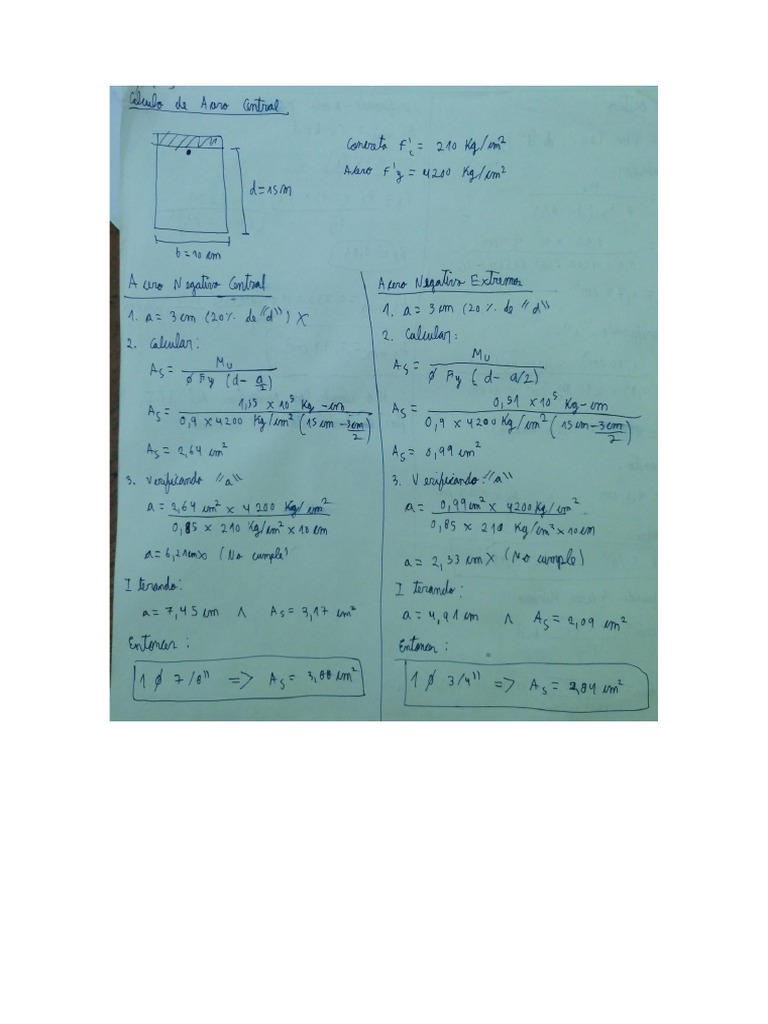 Cálculo de Acero Central
Concreto F'c = 210 Kg/cm²
Acero F'y = 4200 Kg/cm²
d=15cm
b=10 cm
Acero Negativo Central
1. a= 3 cm (20% de "d") X
2. Calcular:
As = Mu / ø Fy (d - a/2)
As = 1,35 x 10⁵ Kg-cm / 0,9 x 4200 Kg/cm² (15cm - 3cm/2)
As = 2,64 cm²
3. Verificando "a"
a = 2,64 cm² x 4200 Kg/cm² / 0,85 x 210 Kg/cm² x 10 cm
a= 6,21cm X (No cumple)
Iterando:
a= 7,45 cm ∧ As = 3,17 cm²
Entonces:
1 ø 7/8" => As = 3,88 cm²
Acero Negativo Extremos
1. a= 3 cm (20% de "d"
2. Calcular:
As = Mu / ø Fy (d - a/2)
As = 0,51 x10⁵ Kg-cm / 0,9 x 4200 Kg/cm² (15cm - 3cm/2)
As = 0,99 cm²
3. Verificando: "a"
a = 0,99cm² x 4200Kg/cm² / 0,85 x 210 Kg/cm² x 10cm
a= 2,33 cm X (No cumple)
Iterando:
a= 4,91 cm ∧ As = 2,09 cm²
Entonces:
1 ø 3/4" => As = 2,84 cm²